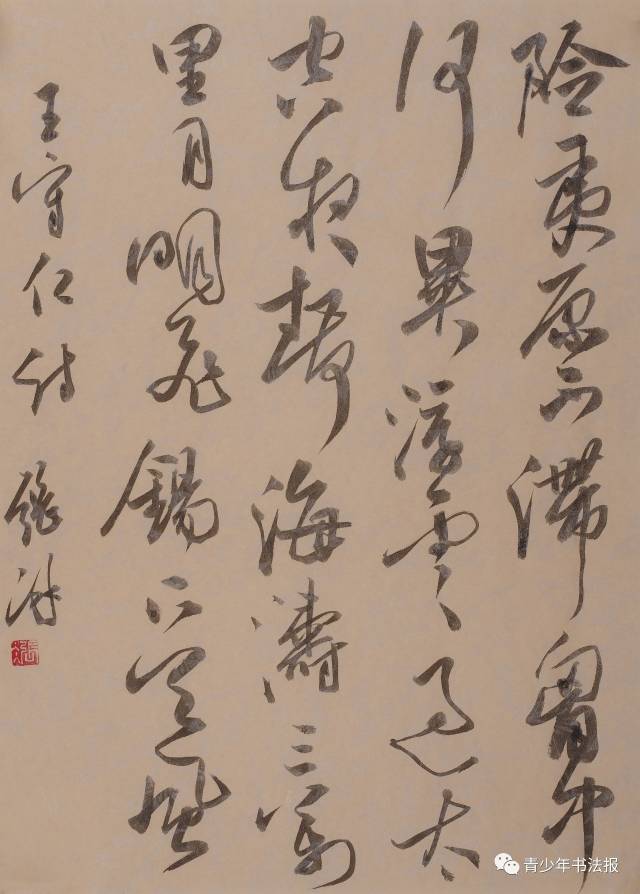 险夷原不滞胸中
何异浮云过太
空夜静海涛三万
里月明飞锡下天风
王守仁诗 张
青少年书法报